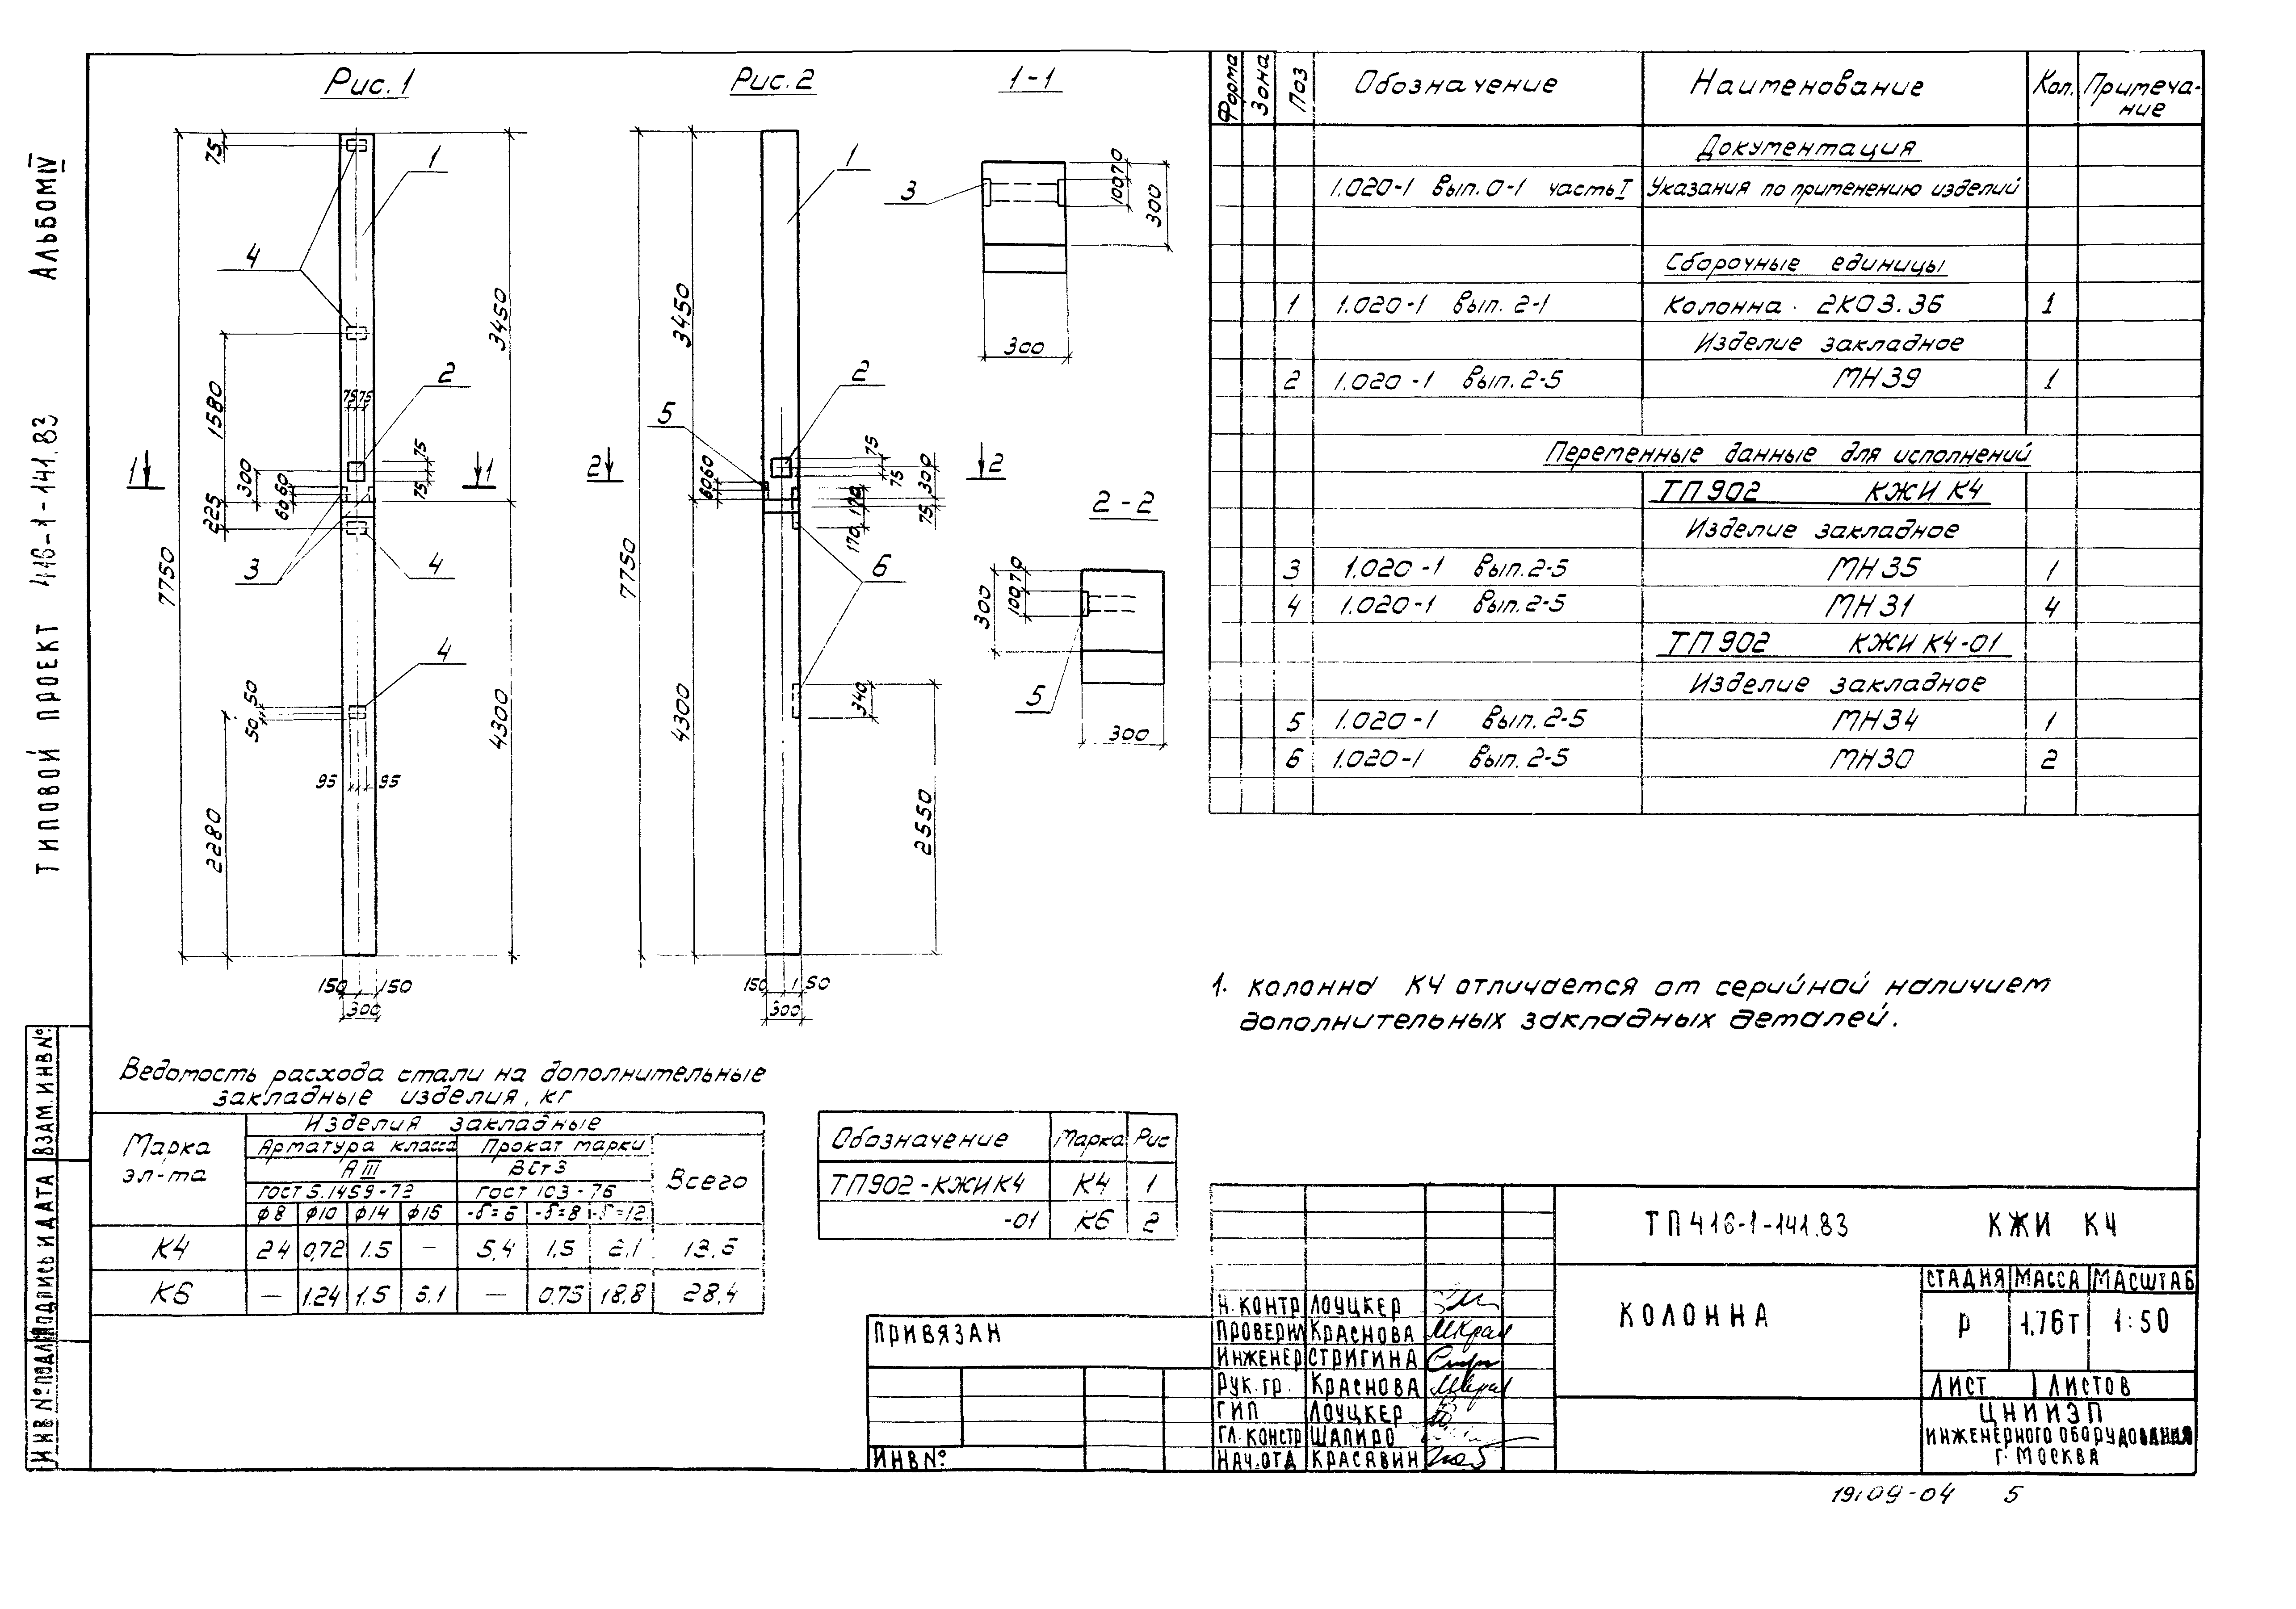 Альбом IV
Типовой проект 416-1-141.83
Рис. 1
Рис. 2
1-1
2-2
75
1
4
3450
1580
2
75 75
75
75
1
1
300
60 60
225
3
4
7750
4
50
50
4300
95
95
2280
150
150
300
1
3450
2
5
75
75
2
2
60 60
300
75
170 170
6
7750
4300
340
2550
150
150
300
3
100 70
300
300
300
100 70
5
300
Форма
Зона
Поз
Обозначение
Наименование
Кол.
Примеча-
ние
Документация
1.020-1 вып. 0-1 часть I Указания по применению изделий
Сборочные единицы
1 1.020-1 вып. 2-1 Колонна 2КО3.36 1
Изделие закладное
2 1.020-1 вып. 2-5 МН39 1
Переменные данные для исполнений
ТП902 КЖИ К4
Изделие закладное
3 1.020-1 вып. 2-5 МН35 1
4 1.020-1 вып. 2-5 МН31 4
ТП902 КЖИ К4-01
Изделие закладное
5 1.020-1 вып. 2-5 МН34 1
6 1.020-1 вып. 2-5 МН30 2
1. Колонна К4 отличается от серийной наличием
дополнительных закладных деталей.
Ведомость расхода стали на дополнительные
закладные изделия, кг
Марка
эл-та
Изделия закладные
Арматура класса Прокат марки
А III ВСт3
Всего
ГОСТ 5.1459-72 ГОСТ 103-76
ф8 ф10 ф14 ф16 -δ=6 -δ=8 -δ=12
К4 24 0,72 1.5 — 5,4 1,5 2,1 13,6
К6 — 1.24 1.5 6.1 — 0,75 18,8 28,4
Обозначение Марка Рис
ТП902-КЖИ К4 К4 1
-01 К6 2
ТП 416-1-141.83 КЖИ К4
Колонна
Стадия Масса Масштаб
Р 1.76т 1:50
Лист Листов
ЦНИИЭП
инженерного оборудования
г. Москва
Н. контр Лоуцкер
Проверил Краснова
Инженер Стригина
Рук. гр. Краснова
ГИП Лоуцкер
Гл. констр Шапиро
Нач. отд Красавин
Привязан
Инв №
Взам. инв №
Подпись и дата
Инв № подл
19109-04 5